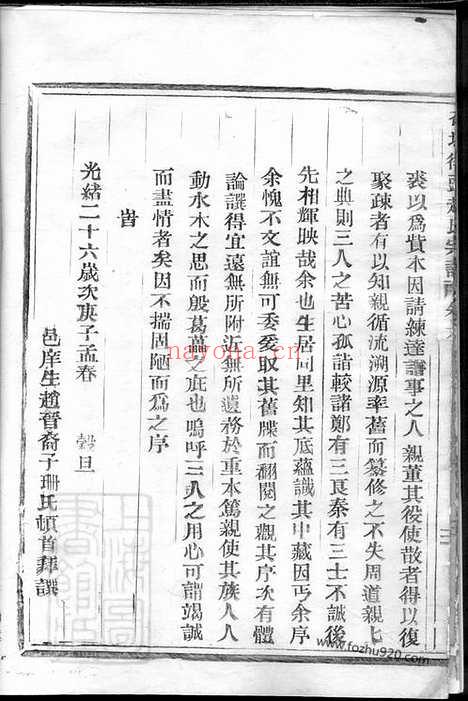 裘以爲貲本因請練達譜事之人親董其役使散者得以復
聚疎者有以知親循流溯源率舊而纂修之不失周道親親
之典則三人之苦心孤詣較諸鄭有三良秦有三士不誠後
先相輝映哉余也生居同里知其底蘊識其中藏因丐余序
余愧不文誼無可委爰取其舊牒而翻閱之觀其序次有體
論譔得宜遠無所附近無所遺務於重本篤親使其族人人
動水木之思而殷葛藟之庇也嗚呼三人之用心可謂竭誠
而盡情者矣因不揣固陋而爲之序
旹
光緒二十六歲次庚子孟春 穀旦
邑庠生趙晉裔子珊氏頓首拜譔
nayona.com
www.fozhu920.com